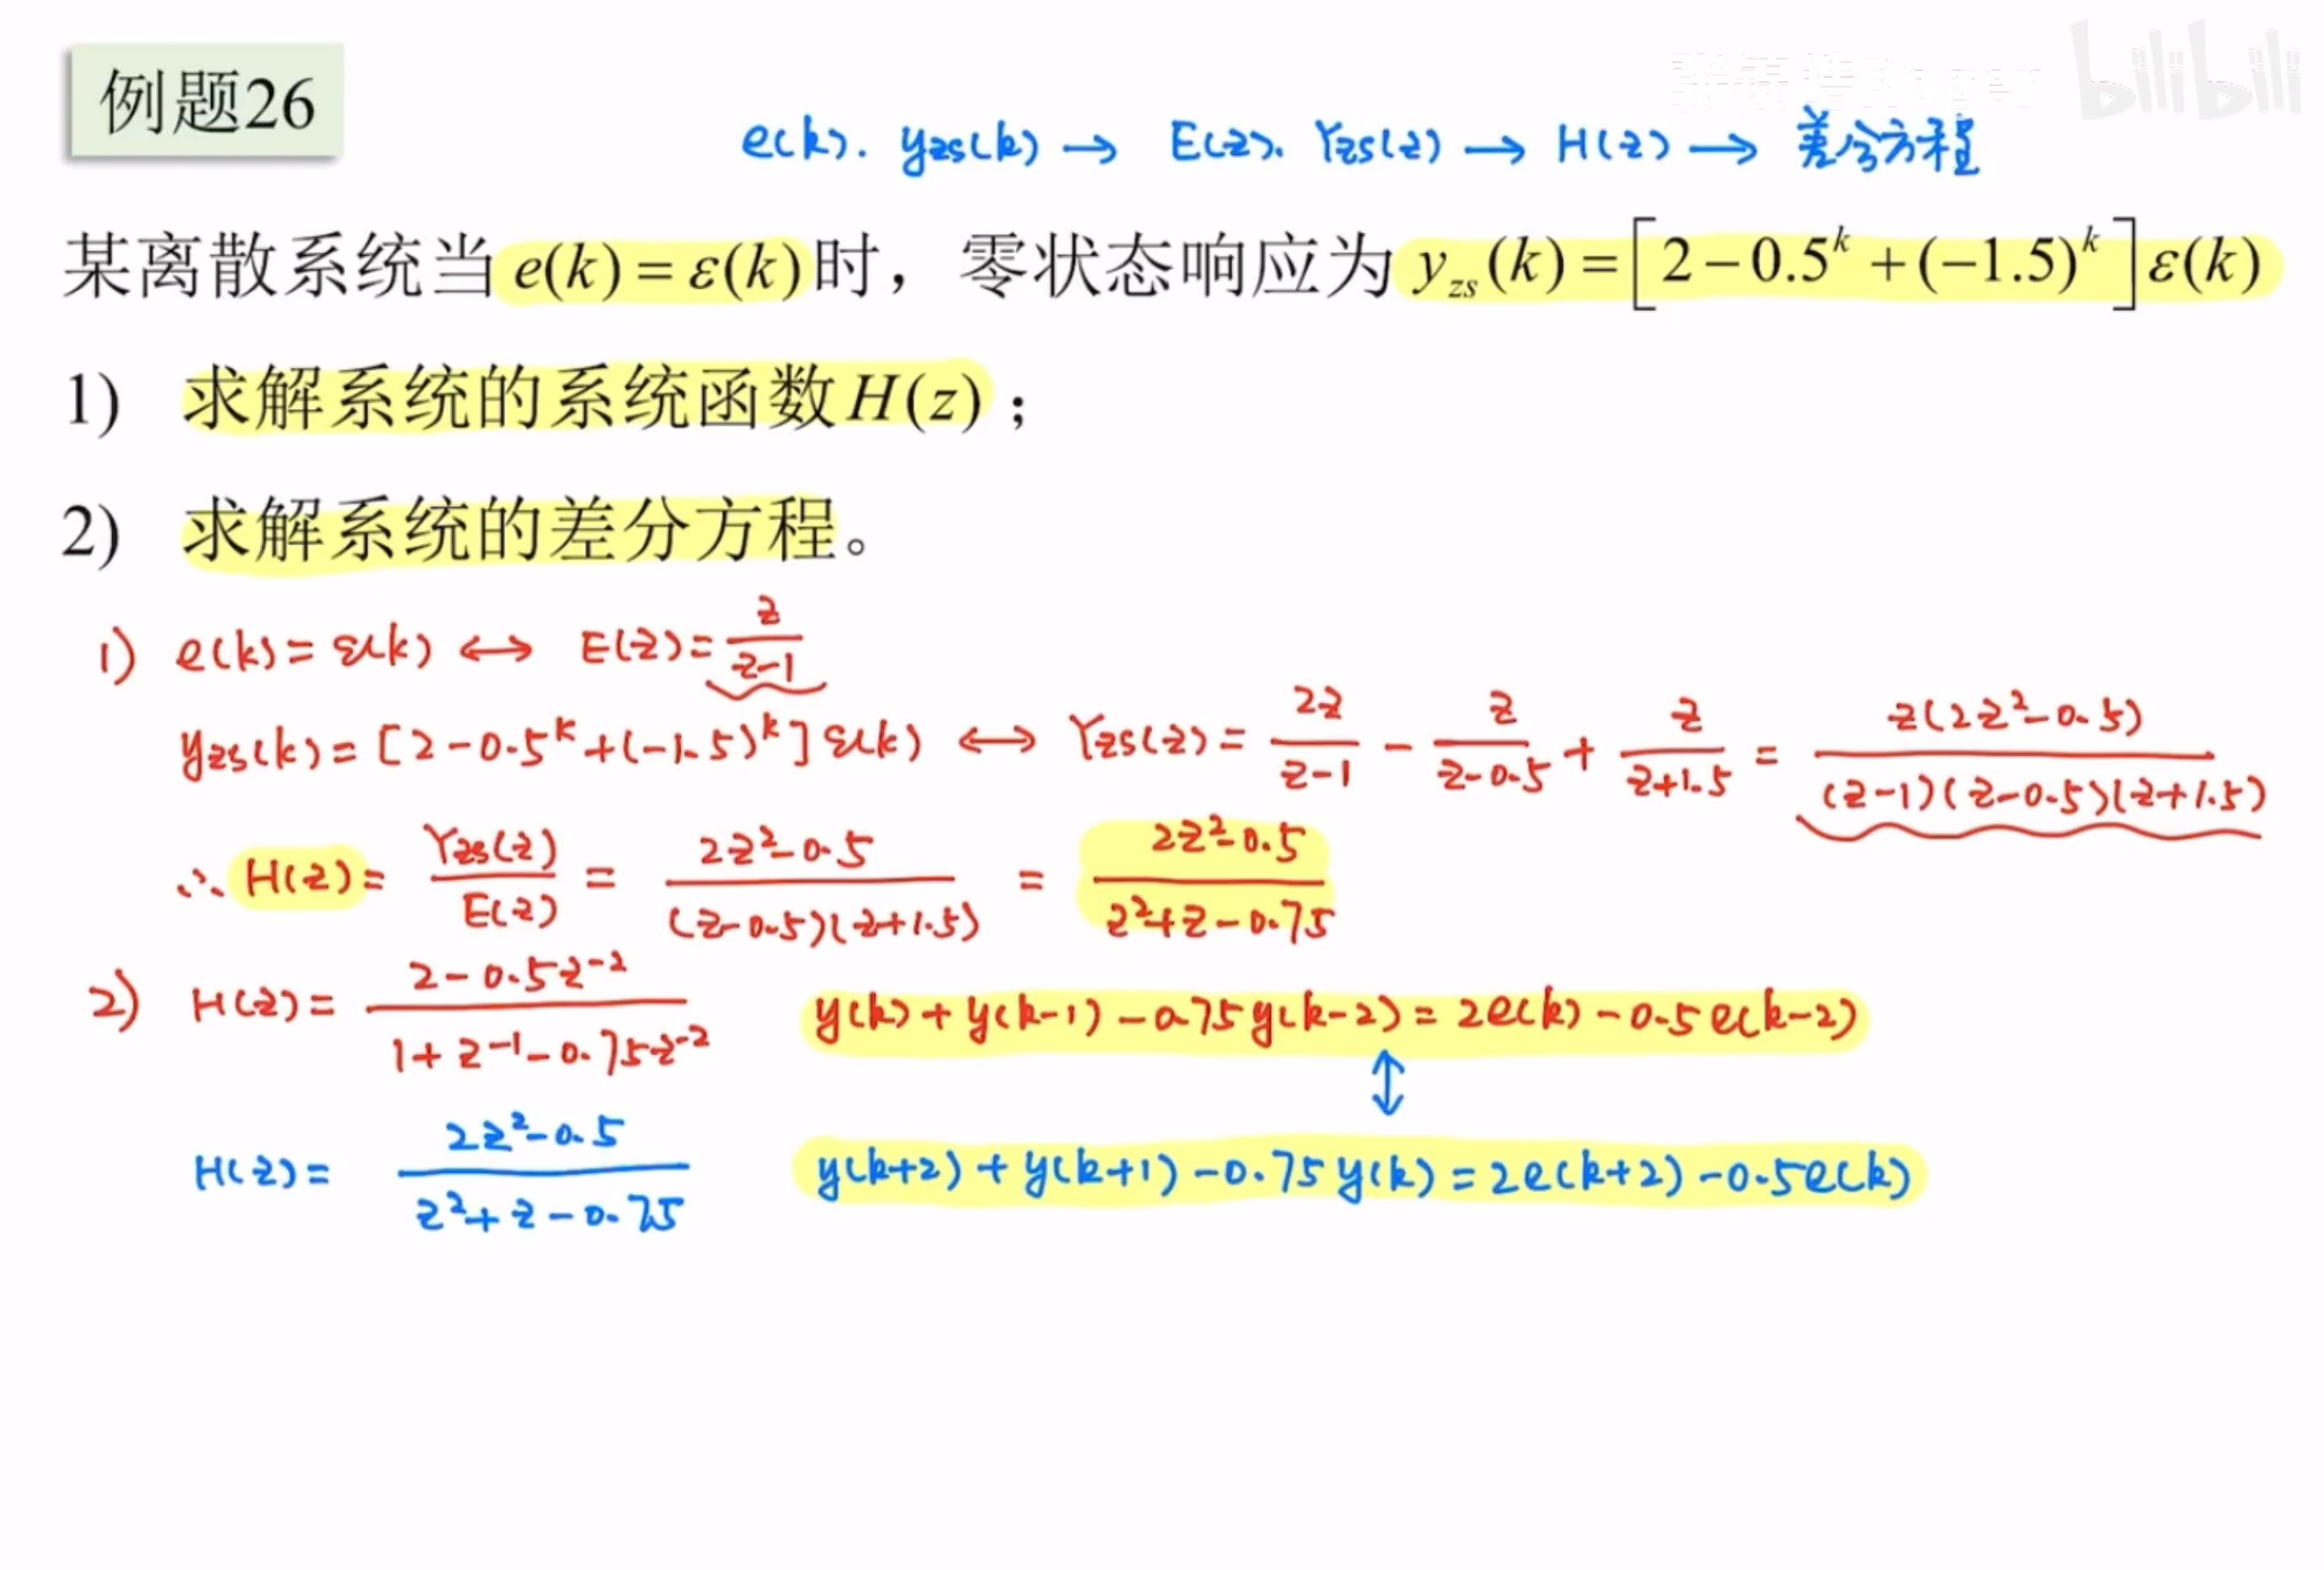 bilibili
例题26
e(k). yzs(k) → E(z). Yzs(z) → H(z) → 差分方程
某离散系统当 e(k) = ε(k) 时，零状态响应为 y_zs(k) = [2 − 0.5^k + (−1.5)^k] ε(k)
1) 求解系统的系统函数 H(z)；
2) 求解系统的差分方程。
1) e(k) = ε(k) ↔ E(z) = z/(z-1)
yzs(k) = [2 - 0.5^k + (-1.5)^k] ε(k) ↔ Yzs(z) = 2z/(z-1) - z/(z-0.5) + z/(z+1.5) = z(2z²-0.5)/((z-1)(z-0.5)(z+1.5))
∴ H(z) = Yzs(z)/E(z) = (2z²-0.5)/((z-0.5)(z+1.5)) = (2z²-0.5)/(z²+z-0.75)
2) H(z) = (2-0.5z^-2)/(1+z^-1-0.75z^-2) y(k)+y(k-1)-0.75y(k-2) = 2e(k)-0.5e(k-2)
↕
H(z) = (2z²-0.5)/(z²+z-0.75) y(k+2)+y(k+1)-0.75y(k) = 2e(k+2)-0.5e(k)